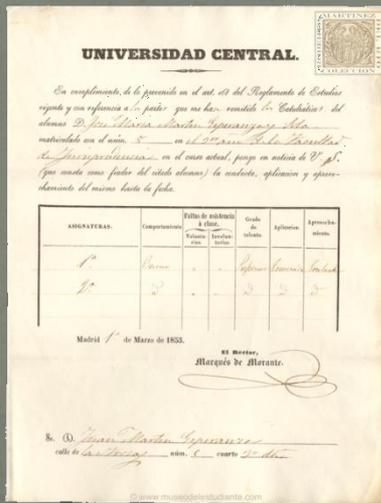 MARTINEZ
COLECCION
UNIVERSIDAD CENTRAL.
En cumplimiento de lo prevenido en el art. del Reglamento de Estudios
vigente y con referencia a partes que me han remitido los Catedráticos del
alumno D. José Maria Martin Esperanza y
matriculado con el núm. 5 en el 2º año de la Facultad
de Jurisprudencia en el curso actual, pongo en noticia de V. S.
(que consta como fiador del citado alumno) la conducta, aplicacion y aprove-
chamiento del mismo hasta la fecha.
ASIGNATURAS. Comportamiento Faltas de asistencia á clase. Grado de talento. Aplicacion. Aprovecha-
miento.
Volunta-
rias Involun-
tarias
1ª Bueno
2ª
Madrid 1º de Marzo de 1853.
El Rector,
Marqués de Morante.
Sr. D. Juan Martin Esperanza
calle de núm. 5 cuarto 2º
© www.museodelestudiante.com